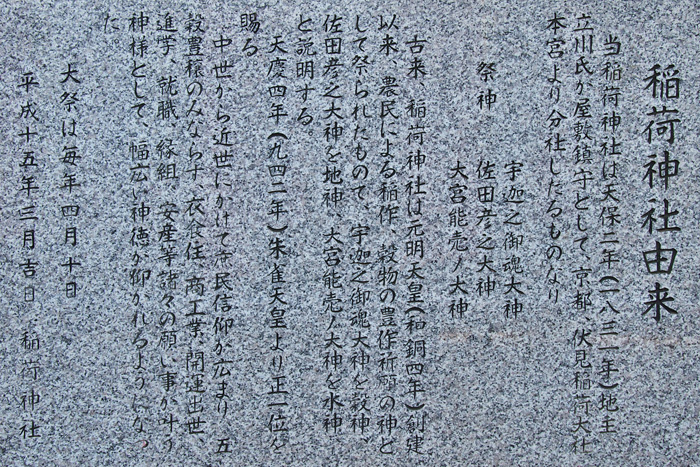 稲荷神社由来
当稲荷神社は天保二年(一八三一年)地主
立川氏が屋敷鎮守として、京都、伏見稲荷大社
本宮より分社したるものなり。
祭神
宇迦之御魂大神
佐田彦之大神
大宮能売ノ大神
古来、稲荷神社は元明天皇(和銅四年)創建
以来、農民による稲作、穀物の豊作祈願の神と
して祭られたもので、宇迦之御魂大神を穀神、
佐田彦之大神を地神、大宮能売ノ大神を水神
と説明する。
天慶四年(九四二年)朱雀天皇より正一位を
賜る。
中世から近世にかけて庶民信仰が広まり、五
穀豊穣のみならず、衣食住、商工業、開運出世
進学、就職、縁組、安産等諸々の願い事が叶う
神様として、幅広い神徳が仰がれるようになっ
た。
大祭は毎年四月十日
平成十五年三月吉日 稲荷神社